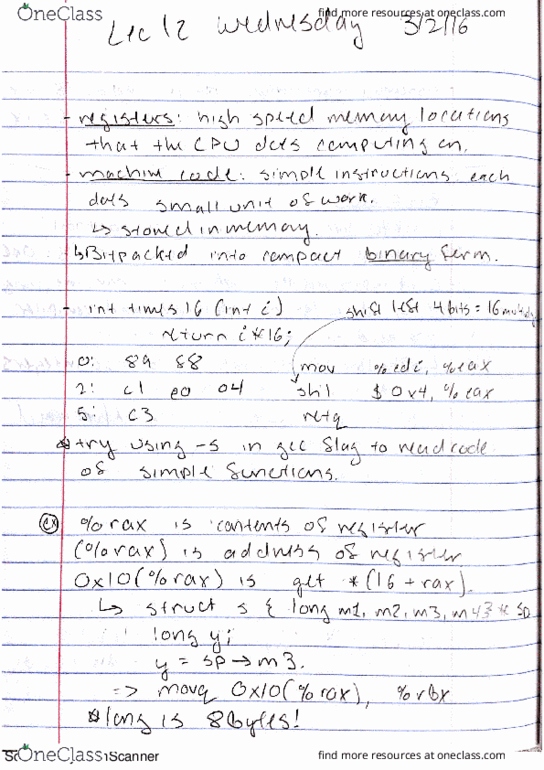 OneClass
find more resources at oneclass.com
Lec 12 Wednesday 3/2/16
- registers: high speed memory locations
that the CPU does computing on.
- machine code: simple instructions each
does small unit of work.
↳ stored in memory.
↳ Bitpacked into compact binary form.
- int times16 (int i)
shift left 4 bits = 16
return i*16;
0: 89 88 mov %edi, %eax
2: c1 e0 04 shl $0x4, %eax
5: c3 retq
* try using -S in gcc flag to read code
of simple functions.
ex %rax is contents of register
(%rax) is address of register
0x10(%rax) is get *(16 + rax).
↳ struct s { long m1, m2, m3, m4 } * sp
long y;
y = sp → m3.
=> movq 0x10(%rax), %rbx
* long is 8 bytes!
OneClass
Scanner
find more resources at oneclass.com